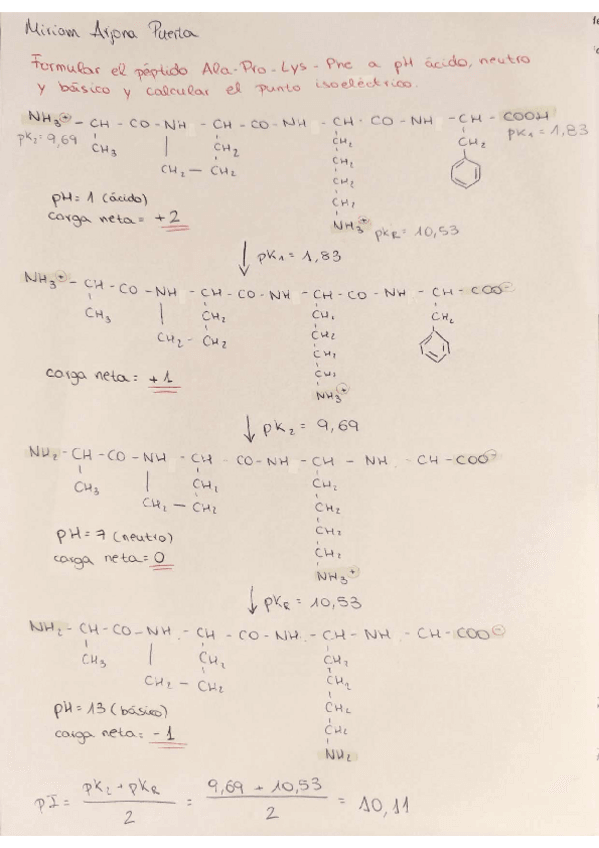 Miriam Arjona Puerta
Formular el péptido Ala-Pro-Lys-Phe a pH ácido, neutro
y básico y calcular el punto isoeléctrico.
NH3⊕ - CH - CO - NH - CH - CO - NH - CH - CO - NH - CH - COOH
pK2 = 9,69 CH3 CH2 CH2 CH2 pK1 = 1,83
CH2 - CH2 CH2
CH2
pH = 1 (ácido) CH2
carga neta = +2 NH3⊕ pKR = 10,53
↓ pK1 = 1,83
NH3⊕ - CH - CO - NH - CH - CO - NH - CH - CO - NH - CH - COO⊖
CH3 CH2 CH2 CH2
CH2 - CH2 CH2
CH2
carga neta: +1 CH2
NH3⊕
↓ pK2 = 9,69
NH2 - CH - CO - NH - CH - CO - NH - CH - NH - CH - COO⊖
CH3 CH2 CH2
CH2 - CH2 CH2
pH = 7 (neutro) CH2
carga neta = 0 CH2
NH3⊕
↓ pKR = 10,53
NH2 - CH - CO - NH - CH - CO - NH - CH - NH - CH - COO⊖
CH3 CH2 CH2
CH2 - CH2 CH2
pH = 13 (básico) CH2
carga neta: -1 CH2
NH2
pI = pK2 + pKR / 2 = 9,69 + 10,53 / 2 = 10,11